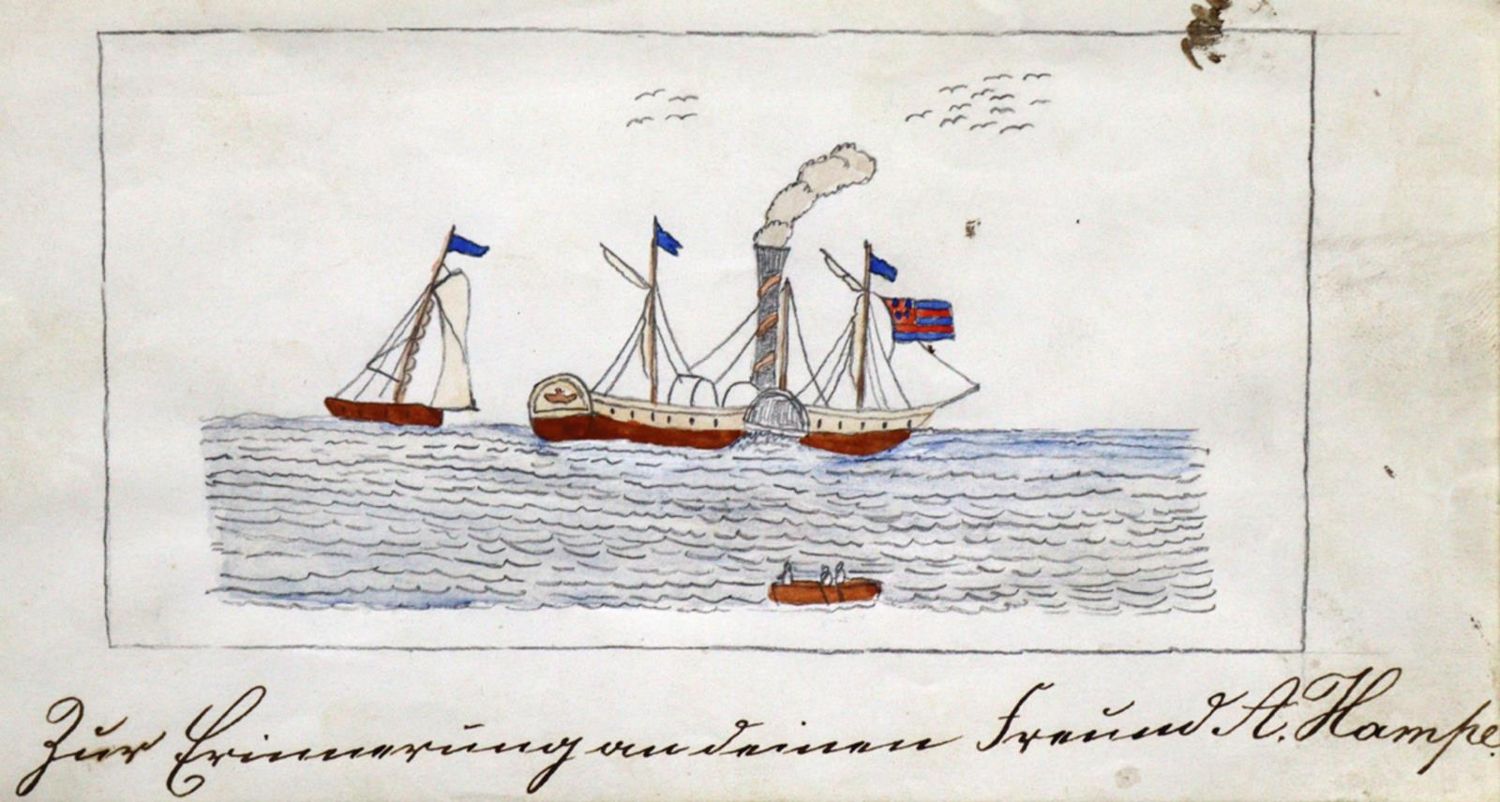 Zur Erinnerung an deinen Freund A. Hampe.